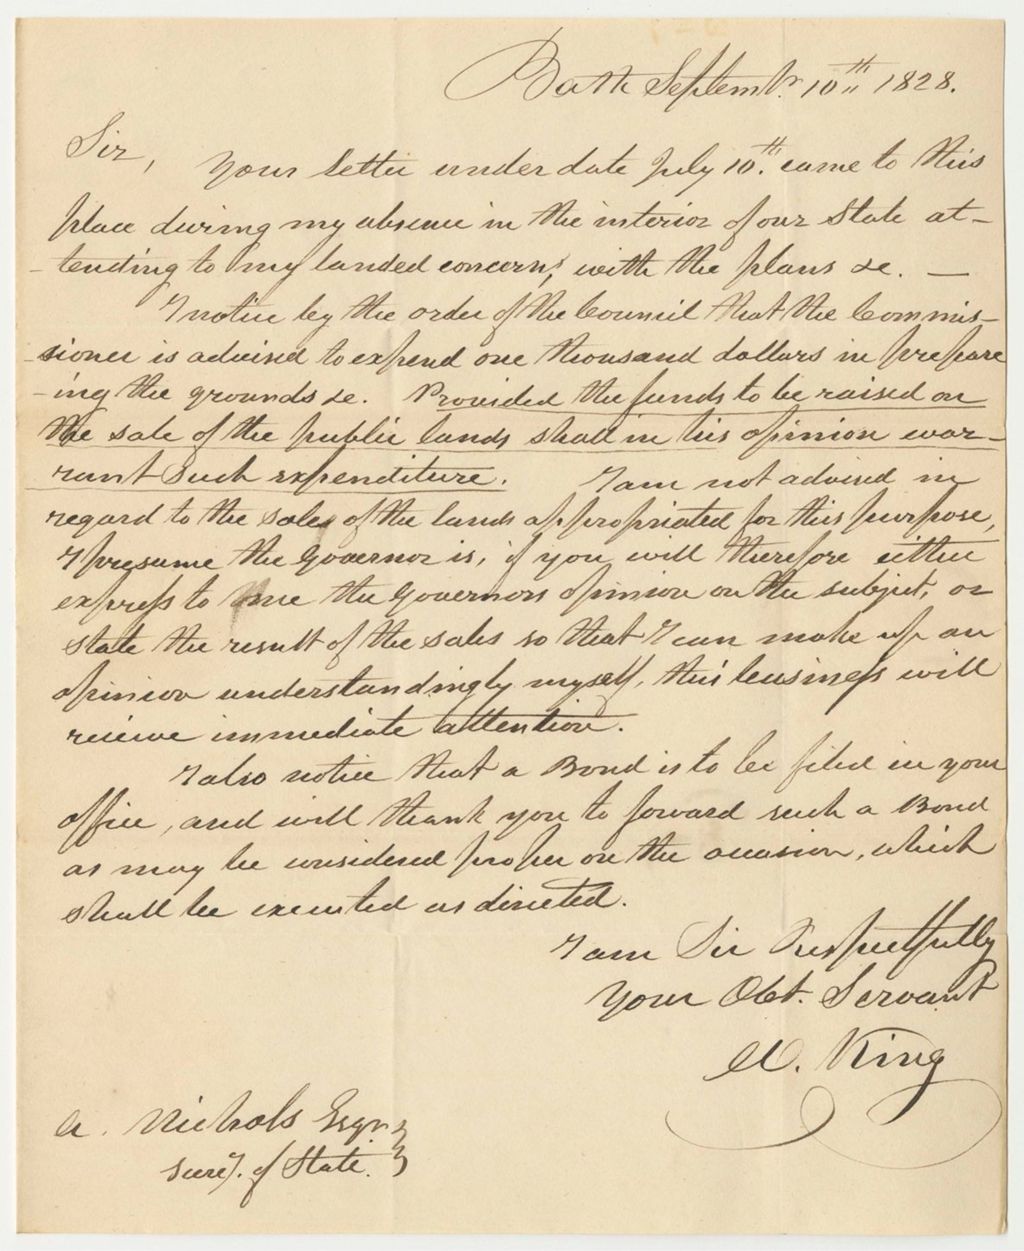 Bath Septembr. 10th 1828.
Sir,
Your letter under date July 10th. came to this
place during my absence in the interior of our State at-
-tending to my landed concerns, with the plans &c. —
I notice by the order of the Council that the Commis-
-sioner is advised to expend one thousand dollars in prepare
-ing the grounds &c. Provided the funds to be raised on
the sale of the public lands shall in his opinion war-
rant such expenditure. I am not advised in
regard to the sales of the lands appropriated for this purpose,
I presume the Governor is, if you will therefore either
express to me the Governors opinion on the subject, or
state the result of the sales so that I can make up an
opinion understandingly myself, this business will
receive immediate attention.
I also notice that a Bond is to be filed in your
office, and will thank you to forward such a Bond
as may be considered proper on the occasion, which
shall be executed as directed.
I am Sir Respectfully
Your Obt. Servant
King
A. Nichols Esqr
Secrey. of State.